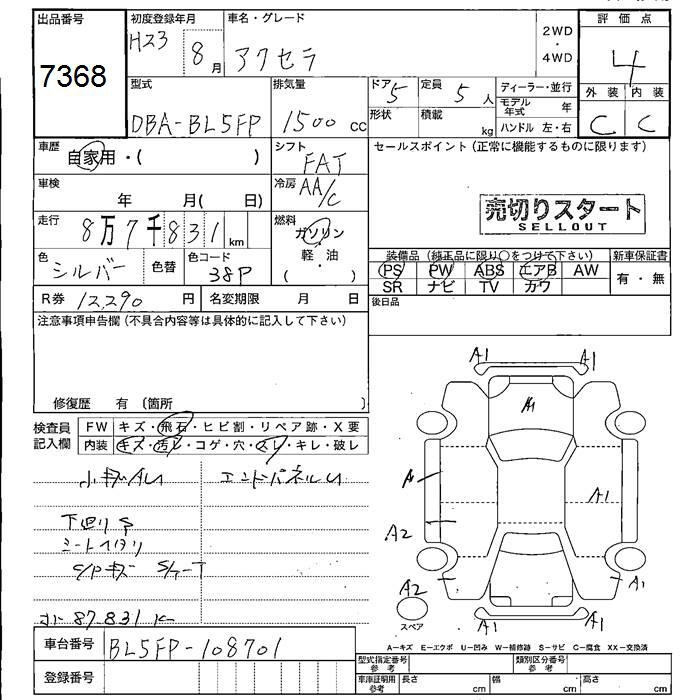 出品番号 初度登録年月 車名・グレード 評価点
7368 H23 8月 アクセラ 2WD・4WD 4
型式 排気量 ドア 5 定員 5人 ディーラー・並行 外装 内装
DBA-BL5FP 1500cc 形状 積載 kg モデル年式 年 C C
ハンドル 左・右
車歴 自家用・( ) シフト FAT セールスポイント(正常に機能するものに限ります)
車検 年 月( 日) 冷房 AA/C
売切りスタート
SELLOUT
走行 8万7千831km 燃料 ガソリン・軽・油 ( )
装備品(純正品に限り○をつけて下さい) 新車保証書
色 シルバー 色替 色コード 38P
PS PW ABS エアB AW 有・無
SR ナビ TV カワ
R券 12,290円 名変期限 月 日 後日品
注意事項申告欄(不具合内容等は具体的に記入して下さい)
修復歴 有 〔箇所 〕
検査員記入欄 FW キズ・飛石・ヒビ割・リペア跡・X要
内装 キズ・汚レ・コゲ・穴・スレ・キレ・破レ
小キズAU エンドパネルU
下廻りS
シートヘタリ
C/Pキズ
87,831K
車台番号 BL5FP-108701
登録番号
A1 A1
A1
A
A1
A2
A2 A1
A1 A1
スペア
A-キズ E-エクボ U-凹み W-補修跡 S-サビ C-腐食 XX-交換済
型式指定番号 参考 類別区分番号 参考
車庫証明用 参考 長さ cm 幅 cm 高さ cm